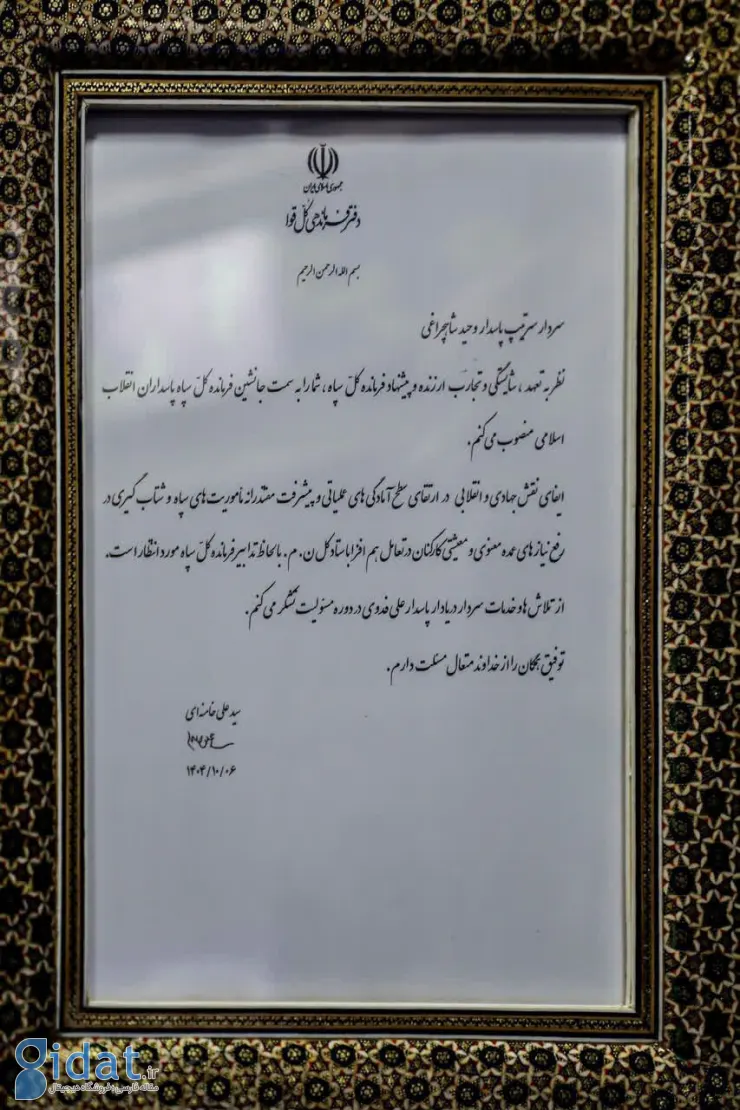 جمهوری اسلامی ایران
دفتر فرماندهی کل قوا
بسم الله الرحمن الرحیم
سردار سرتیپ پاسدار وحید شاهچراغی
نظر به تعهد، شایستگی و تجارب ارزنده و پیشنهاد فرمانده کلّ سپاه، شما را به سمت جانشین فرمانده کلّ سپاه پاسداران انقلاب
اسلامی منصوب می‌کنم.
ایفای نقش جهادی و انقلابی در ارتقای سطح آمادگی های عملیاتی و پیشرفت مقتدرانه ماموریت‌های سپاه و شتاب گیری در
رفع نیازهای عمده معنوی و معیشتی کارکنان در تعامل هم افزا با ستاد کل ن. م. با لحاظ تدابیر فرمانده کلّ سپاه مورد انتظار است.
از تلاش ها و خدمات سردار دریادار پاسدار علی فدوی در دوره مسئولیت تشکر می‌کنم.
توفیق همگان را از خداوند متعال مسئلت دارم.
سید علی خامنه‌ای
۱۴۰۴/۱۰/۰۶
gidat.ir
مقاله فارسی؛ فروشگاه دیجیتال